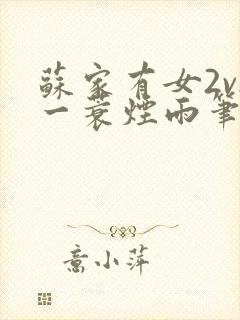 蘇家有女2v
一蓑煙雨筆
意小萍